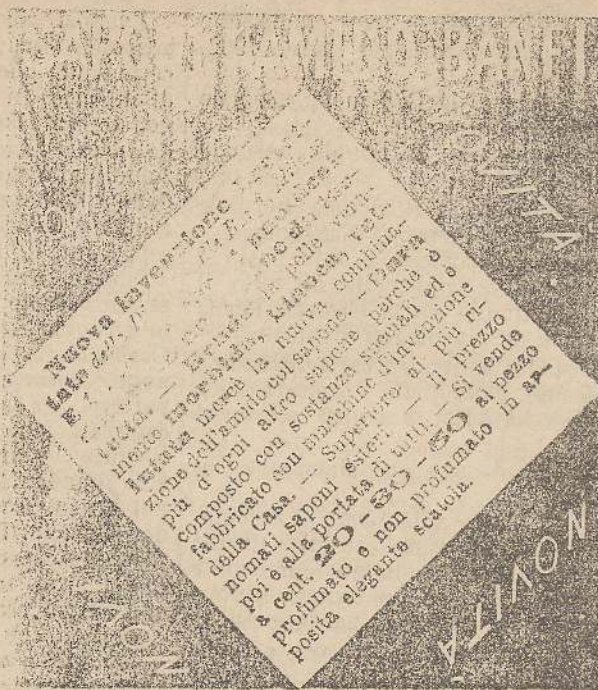 SAPONE AMIDO BANFI
NOVITÀ
Nuova invenzione
tata della
tutto. — Rende la pelle vera-
mente morbida, bianca, vel-
lutata mercè la nuova combina-
zione dell'amido col sapone. — Dura
più d'ogni altro sapone perchè è
composto con sostanze speciali ed è
fabbricato con macchine d'invenzione
della Casa. — Superiore ai più ri-
nomati saponi esteri. — Il prezzo
poi è alla portata di tutti. — Si vende
a cent. 20-30-50 al pezzo
profumato e non profumato in ap-
posita elegante scatola.
NOVITÀ
NOVI